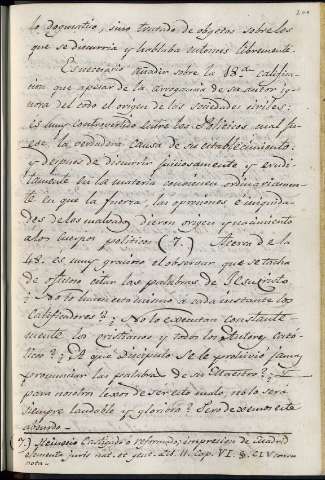 lo dogmatico, sino tratado de objetos sobre los
que se discurria y hablaba entonces libremente.
Es necesario añadir sobre la 18.ª califica-
cion que apesar de la arrogancia de su autor ig-
nora del todo el origen de las sociedades civiles:
es muy controvertido entre los Politicos cual fu-
ese la verdadera causa de su establecimiento:
y despues de discurrir juiciosamente y erudi-
tamente en la materia convienen ordinariamen-
te en que la fuerza, las opresiones é iniquida-
des de los malvados dieron origen y nacimiento
a los cuerpos politicos (7.) Acerca de la
48. es muy gracioso el observar que se tacha
de ofensivo citar las palabras de Jesucristo.
¿No lo hacen lo mismo a cada instante los
Calificadores? ¿No lo executan constante-
mente los cristianos y todos los Autores Cató-
licos? ¿A que Discipulo se le prohivió jamas
pronunciar las palabras de su Maestro? ¿
para nosotros lexos de ser esto malo, no lo será
siempre laudable y glorioso? Pero dexemos este
absurdo.
(7.) Heinecio Castigado o reformado, impresion de Madrid
elementa juris nat. et gent. Lib. II. Cap. VI. §. CIV
nota.